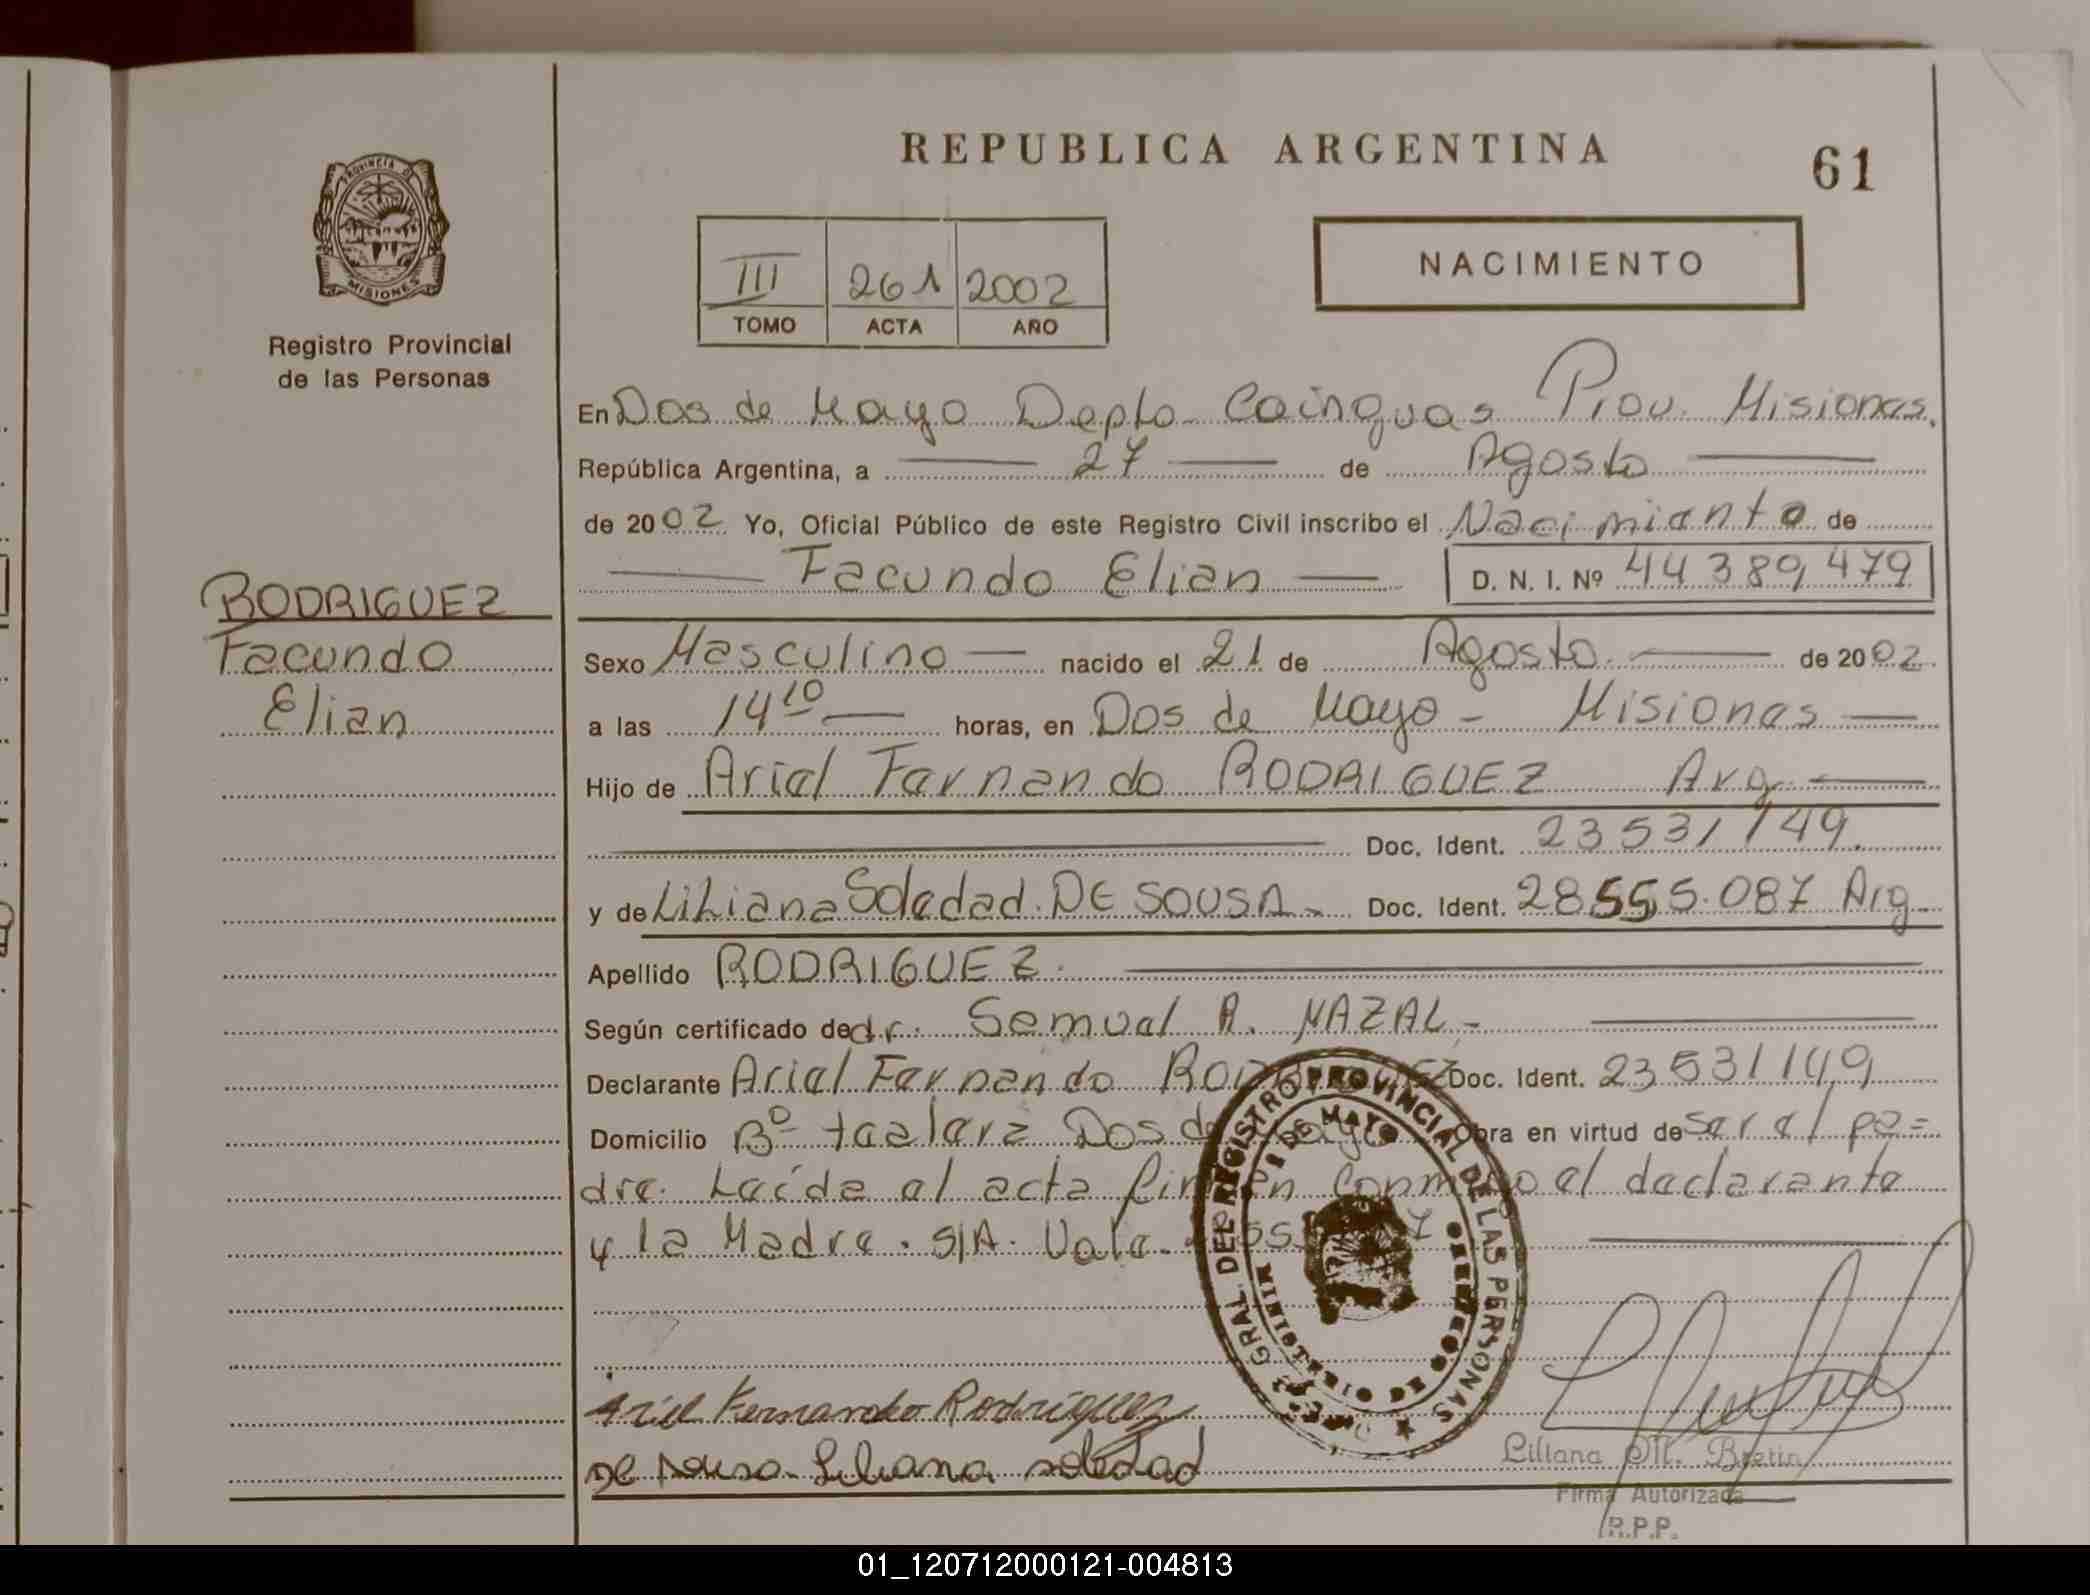 REPUBLICA ARGENTINA
61
PROVINCIA DE
MISIONES
Registro Provincial
de las Personas
III 261 2002
TOMO ACTA AÑO
NACIMIENTO
En Dos de Mayo Depto. Cainguas Prov. Misiones,
República Argentina, a 27 de Agosto
de 2002 Yo, Oficial Público de este Registro Civil inscribo el Nacimiento de
Facundo Elian D. N. I. Nº 44 389 479
RODRIGUEZ
Facundo
Elian
Sexo Masculino nacido el 21 de Agosto de 2002
a las 14 10 horas, en Dos de Mayo - Misiones
Hijo de Ariel Fernando RODRIGUEZ Arg
Doc. Ident. 23531149.
y de Liliana Soledad DE SOUSA - Doc. Ident. 28555.087 Arg
Apellido RODRIGUEZ
Según certificado de dr. Samuel A. NAZAL -
Declarante Ariel Fernando Doc. Ident. 23531149
Domicilio Bº Dos de Mayo Obra en virtud de ser el pa=
dre. Leída el acta firman conmigo el declarante
y la Madre. S/A. Vale.
GRAL DEL REGISTRO PROVINCIAL DE LAS PERSONAS
Ariel Fernando Rodríguez
De Sousa Liliana soledad
Liliana M. Bretin
Firma Autorizada
R.P.P.
01_120712000121-004813